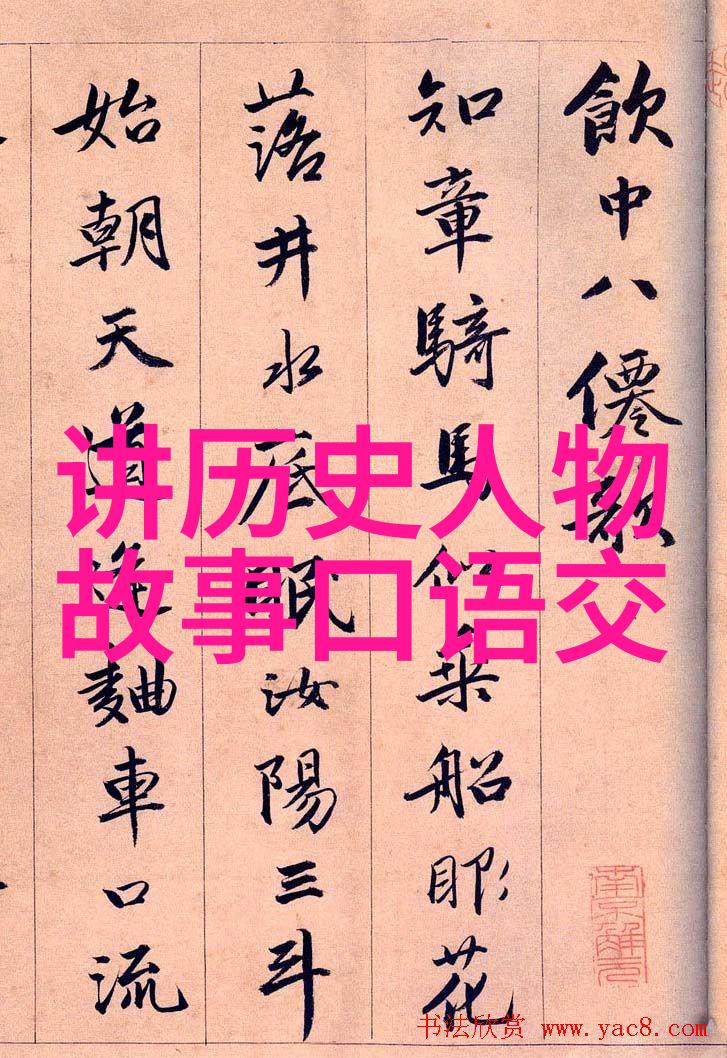 飲中八僊歌
知章騎馬似乘船眼花
落井水底眠汝陽三斗
始朝天道逢麯車口流
讲历史人物
故事口语交
南京解元
书法欣赏 www.yac8.com